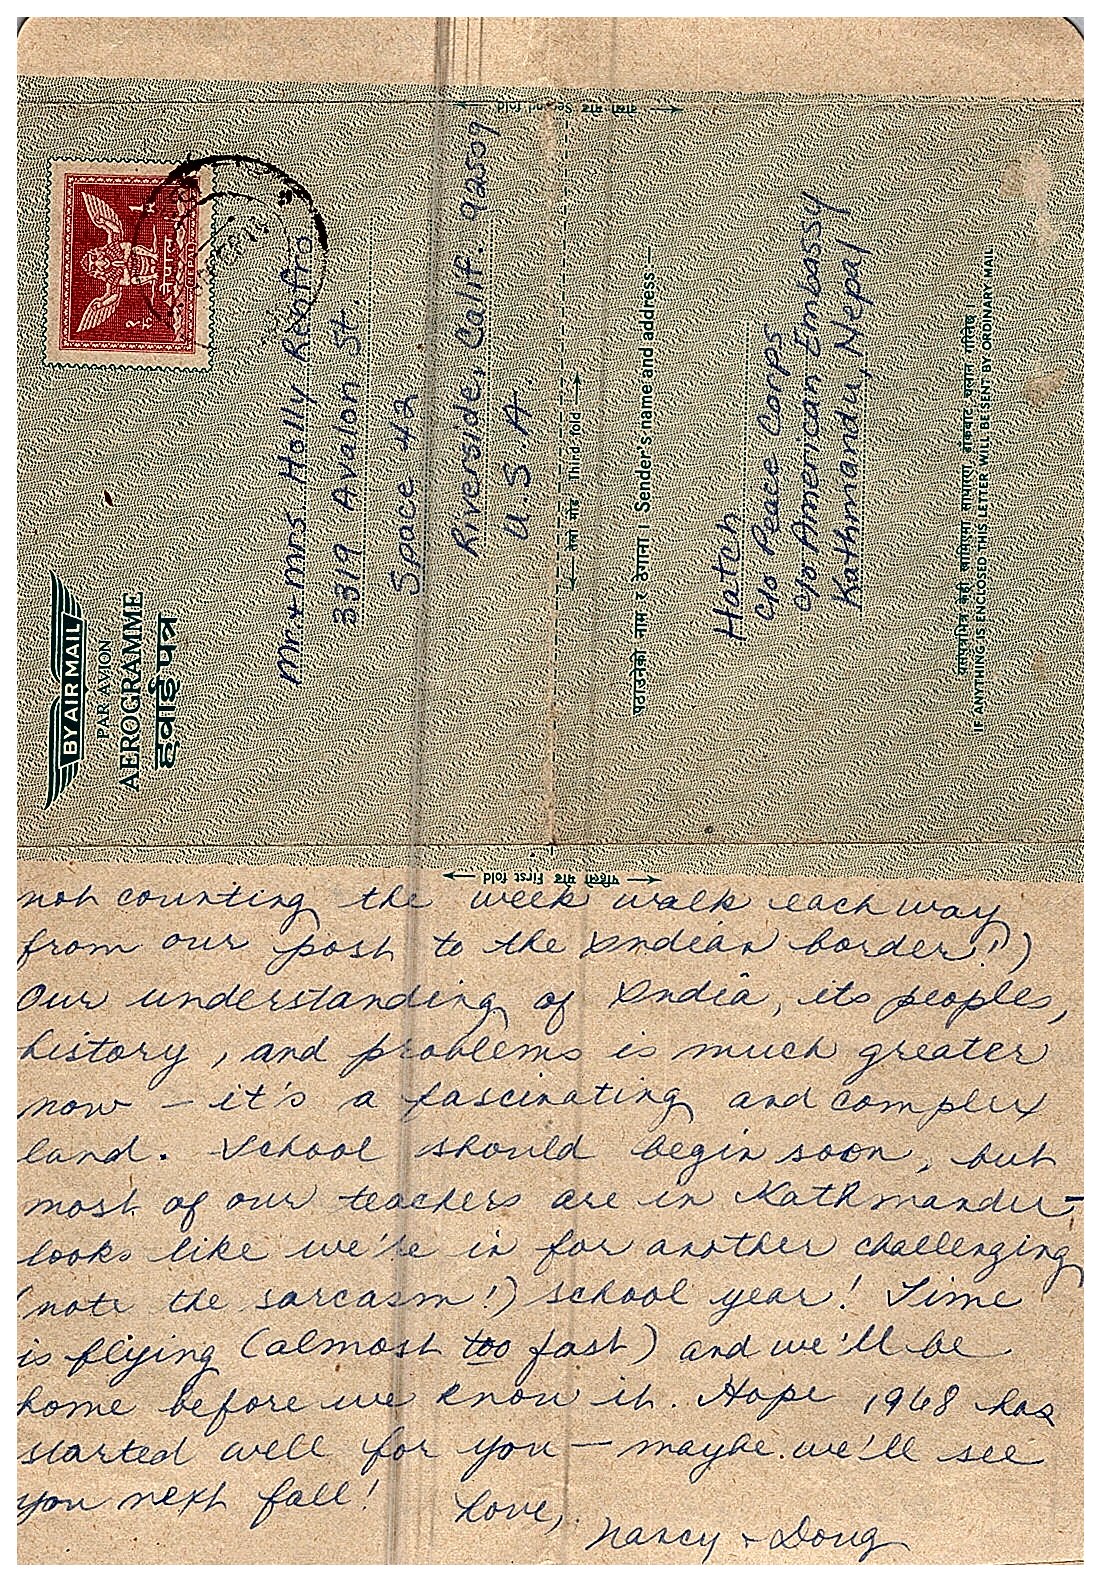 दोस्रो मोड Second fold
नेपाल
NEPAL
BY AIR MAIL
PAR AVION
AEROGRAMME
हवाई पत्र
Mr. + Mrs Holly Renfro
3319 Avalon St.
Space 42
Riverside, Calif. 92509
U.S.A.
तेस्रो मोड Third fold
पठाउनेको नाम र ठेगाना । Sender's name and address
Hatch
c/o Peace Corps
c/o American Embassy
Kathmandu, Nepal
यसपत्रभित्र केही राखिएमा साधारण डाकबाट चलान गरिनेछ ।
IF ANYTHING IS ENCLOSED THIS LETTER WILL BE SENT BY ORDINARY MAIL
पहिलो मोड First fold
not counting the week walk each way
from our post to the Indian border!!)
Our understanding of India, its peoples,
history, and problems is much greater
now – it's a fascinating and complex
land. School should begin soon, but
most of our teachers are in Kathmandu –
looks like we're in for another challenging
(note the sarcasm!) school year! Time
is flying (almost too fast) and we'll be
home before we know it. Hope 1968 has
started well for you – maybe we'll see
you next fall!
Love,
Nancy + Doug